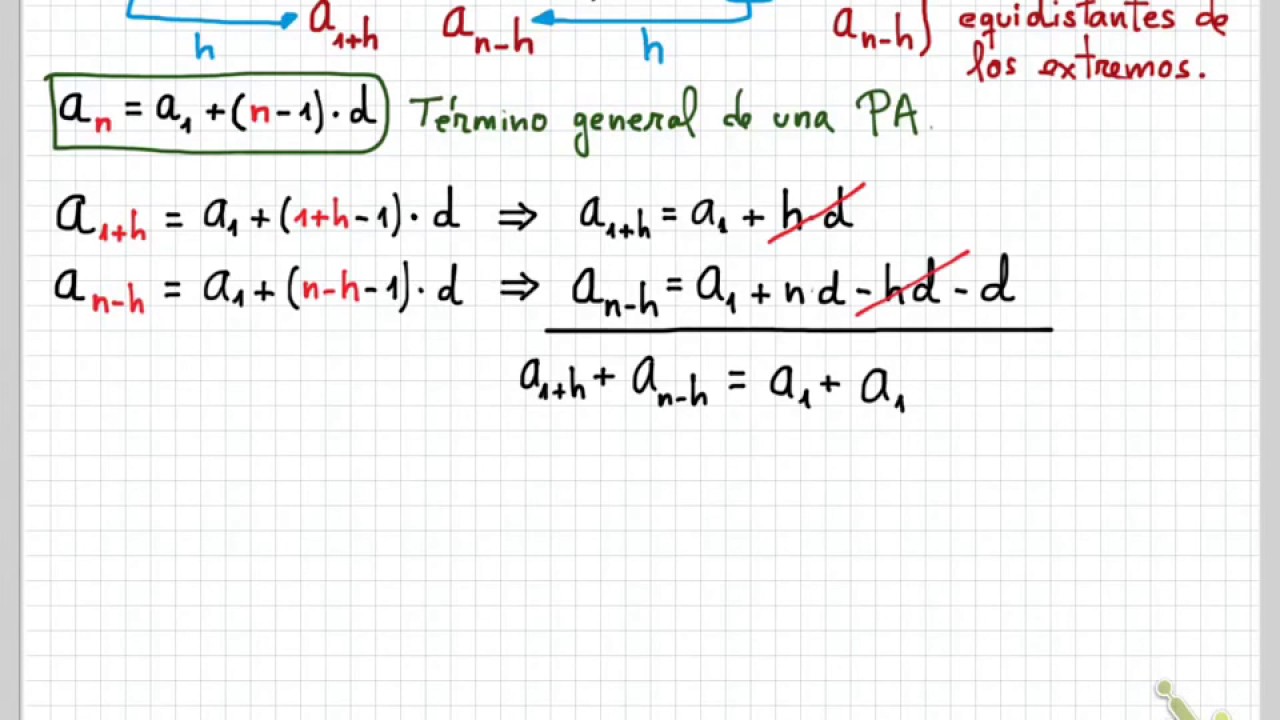 h a₁₊ₕ aₙ₋ₕ h aₙ₋ₕ) equidistantes de
los extremos.
aₙ = a₁ + (n-1)· d Término general de una PA.
a₁₊ₕ = a₁ + (1+h-1)· d ⇒ a₁₊ₕ = a₁ + h·d
aₙ₋ₕ = a₁ + (n-h-1)· d ⇒ aₙ₋ₕ = a₁ + n·d - hd - d
a₁₊ₕ + aₙ₋ₕ = a₁ + a₁